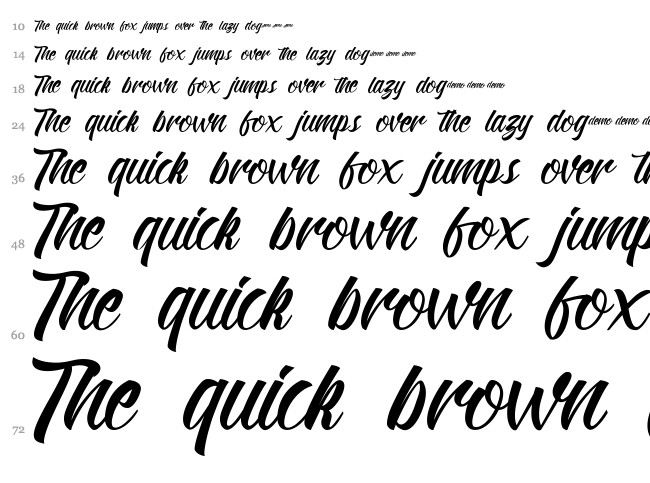 10 The quick brown fox jumps over the lazy dog demo demo demo
14 The quick brown fox jumps over the lazy dog demo demo demo
18 The quick brown fox jumps over the lazy dog demo demo demo
24 The quick brown fox jumps over the lazy dog demo demo d
36 The quick brown fox jumps over th
48 The quick brown fox jump
60 The quick brown fox
72 The quick brown